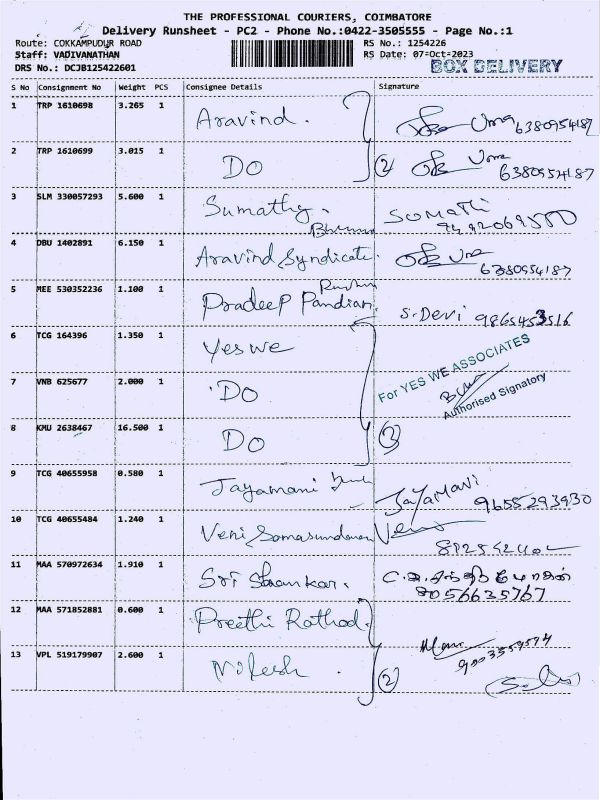 THE PROFESSIONAL COURIERS, COIMBATORE
Delivery Runsheet - PC2 - Phone No.:0422-3505555 - Page No.:1
Route: COKKAMPUDUR ROAD RS No.: 1254226
Staff: VADIVANATHAN RS Date: 07-Oct-2023
DRS No.: DCJB125422601 BOX DELIVERY
S No Consignment No Weight PCS Consignee Details Signature
1 TRP 1610698 3.265 1 Aravind. Uma 6380954187
2 TRP 1610699 3.015 1 DO 2 Uma 6380954187
3 SLM 330057293 5.600 1 Sumathy. SUMATHI
4 DBU 1402891 6.150 1 Aravind Syndicate. 6380954187
5 MEE 530352236 1.100 1 Pradeep Pandian. S. Devi 9865453516
6 TCG 164396 1.350 1 Yes we For YES WE ASSOCIATES
7 VNB 625677 2.000 1 DO Authorised Signatory
8 KMU 2638467 16.500 1 DO 3
9 TCG 40655958 0.580 1 Jayamani JAYAMANI 9655293930
10 TCG 40655484 1.240 1 Veni Somasundaram
11 MAA 570972634 1.910 1 Sri Shankar. 8056635767
12 MAA 571852881 0.600 1 Preethi Rathod. 9003559574
13 VPL 519179907 2.600 1 Nilesh. 2